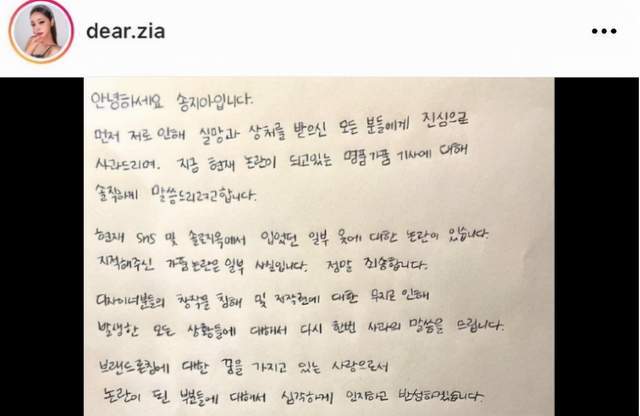 dear.zia
안녕하세요 송지아입니다.
먼저 저로 인해 실망과 상처를 받으신 모든 분들에게 진심으로
사과드리며. 지금 현재 논란이 되고있는 명품가품 기사에 대해
솔직하게 말씀드리려고합니다.
현재 SNS 및 솔로지옥에서 입었던 일부 옷에 대한 논란이 있습니다.
지적해주신 가품논란은 일부 사실입니다. 정말 죄송합니다.
디자이너분들의 창작물 침해 및 저작권에 대한 무지로 인해
발생한 모든 상황들에 대해서 다시 한번 사과의 말씀을 드립니다.
브랜드론칭에 대한 꿈을 가지고 있는 사람으로서
논란이 된 부분들에 대해서 심각하게 인지하고 반성하겠습니다.